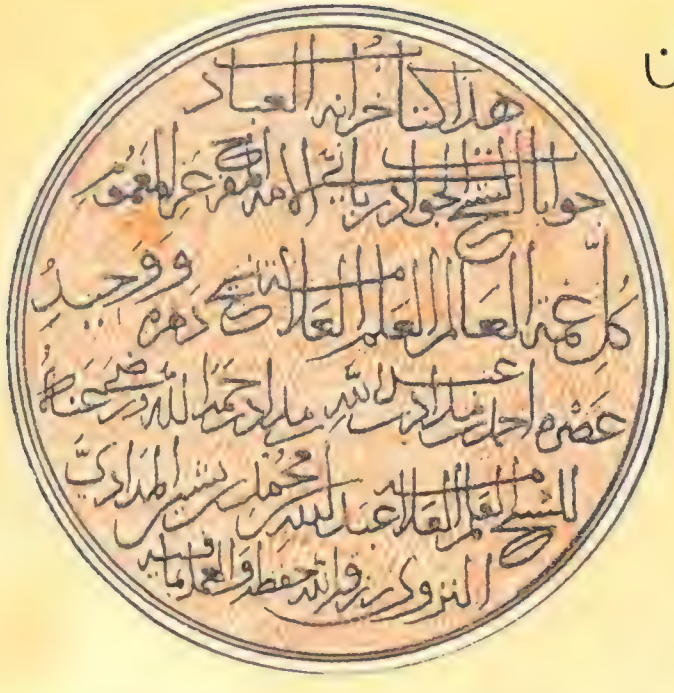 ن
هذا كتاب خزانة العباد
جوابات الشيخ الجواد رباني الأمة المفرج عن المغموم
كُلِّ غمة العالم العلم العلامة شيخ دهره وَوَحِيدُ
عَصْره احمد بن مداد بن عبد الله بن مداد رحمه الله ورضي عنه
للشيخ العالم العلامة عبد الله بن محمد بن بشير المدادي
النزوي رزقه الله حفظه والعمل بما فيه